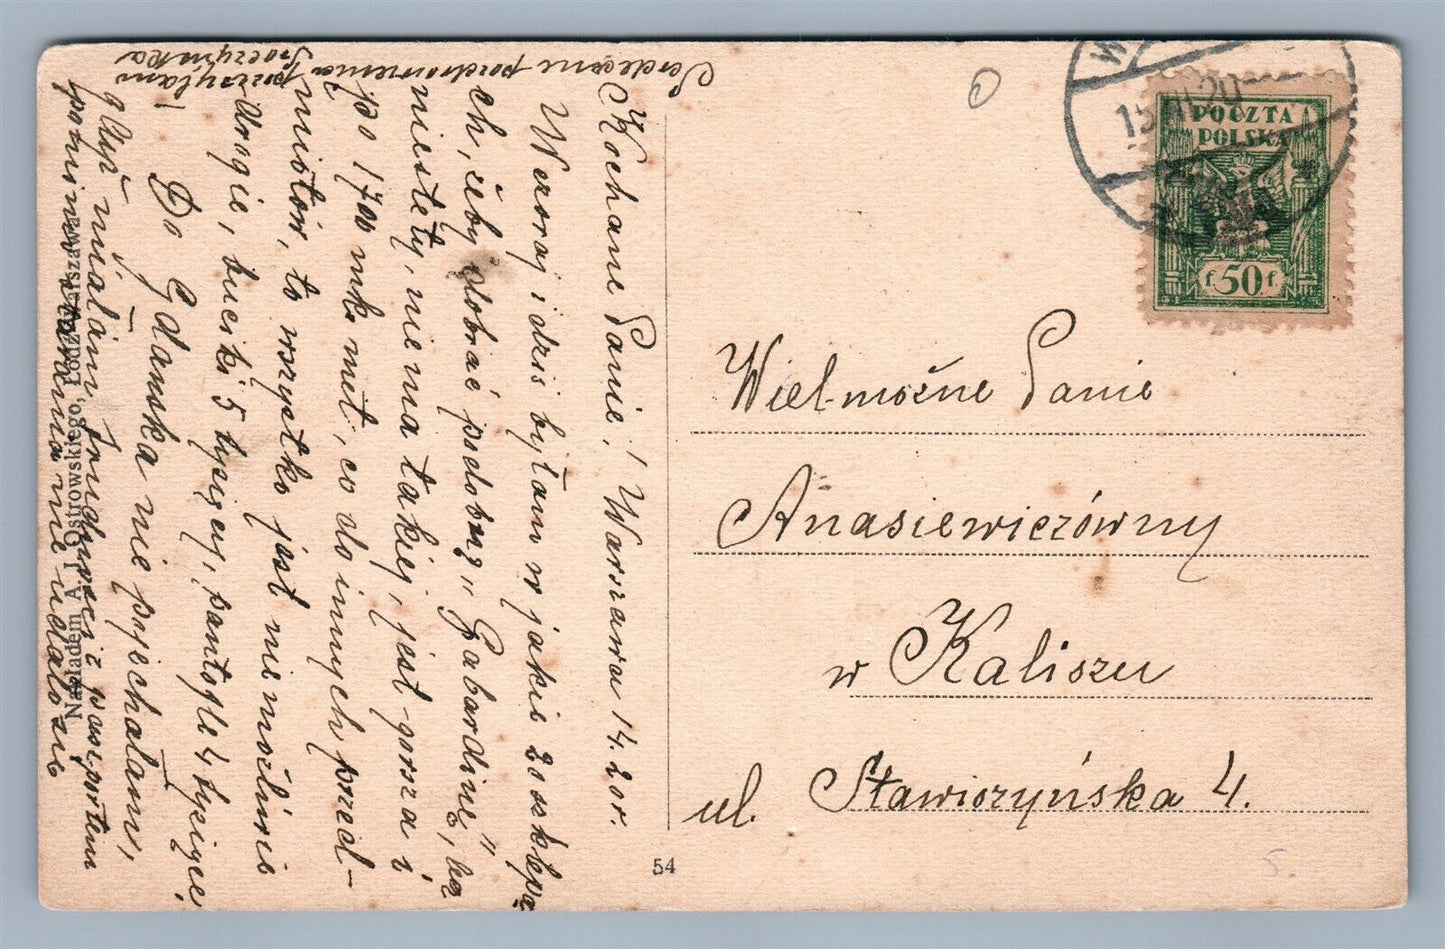 Kochane Panie! Warszawa 14. 20r.
Wczoraj i dziś byłam w jakie 20 sklepa
ch, żeby dobrać podobną „Gabardinę", lecz
niestety, nie ma takiej, jest gorsza i
po 1700 mk. met, co do innych przed-
miotów, to wszystko jest niemożliwie
drogie, buciki 5 tysięcy, pantofle 4 tysiące
Do Gdańska nie pojechałam,
gdyż miałam trudności z paszportem
pomimo starania nie udało się
Serdeczne pozdrowienia
przesyłam
Nakładem A. J. Ostrowskiego, Łódź-Warszawa
54
POCZTA
POLSKA
f 50 f
Wielmożne Panie
Anasiewiczówny
w Kaliszu
ul. Stawiszyńska 4.